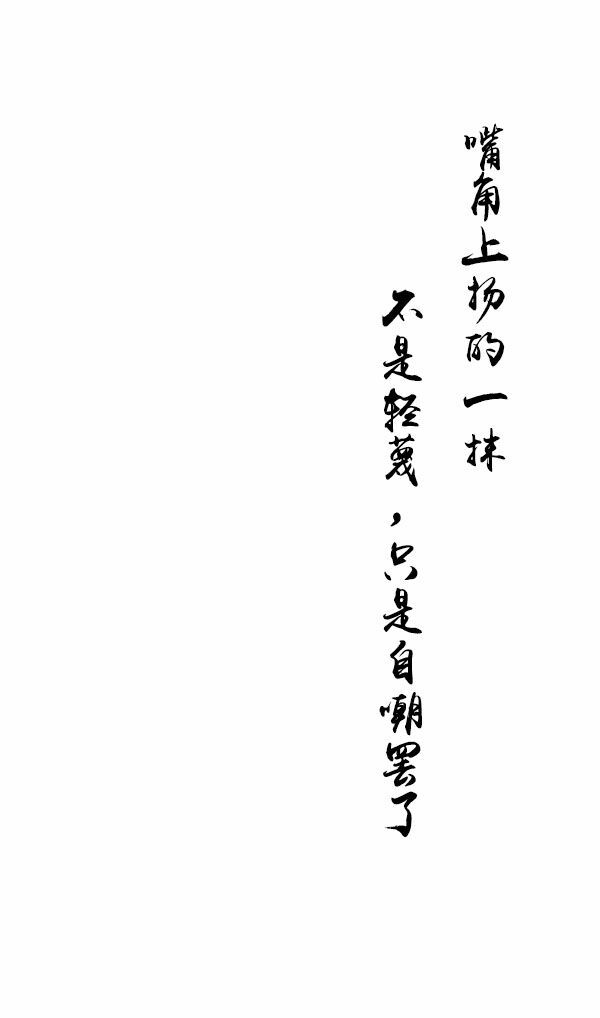 嘴角上扬的一抹
不是轻蔑，只是自嘲罢了